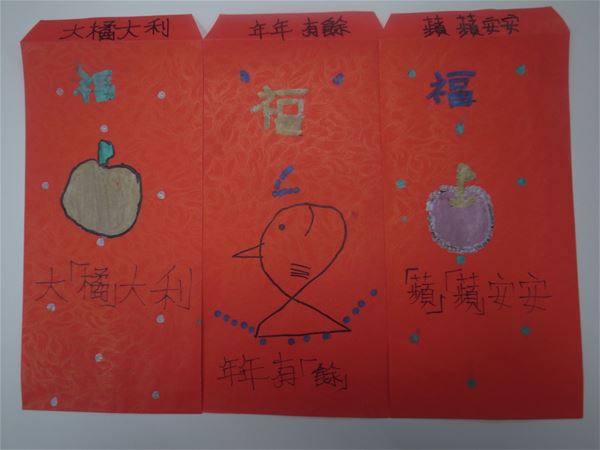 大橘大利
福
大「橘」大利
年年有餘
福
年年有「餘」
蘋蘋安安
福
「蘋」「蘋」安安